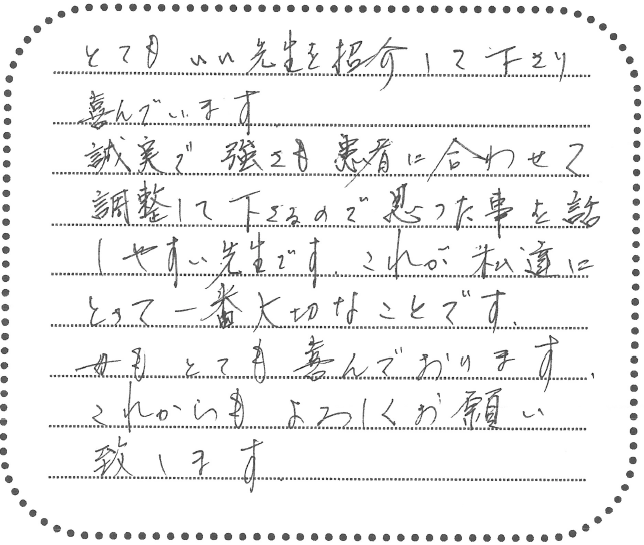 とてもいい先生を紹介して下さり
喜んでいます
誠実で強さも患者に合わせて
調整して下さるので思った事を話
しやすい先生です。これが私達に
とって一番大切なことです。
母もとても喜んでおります。
これからもよろしくお願い
致します